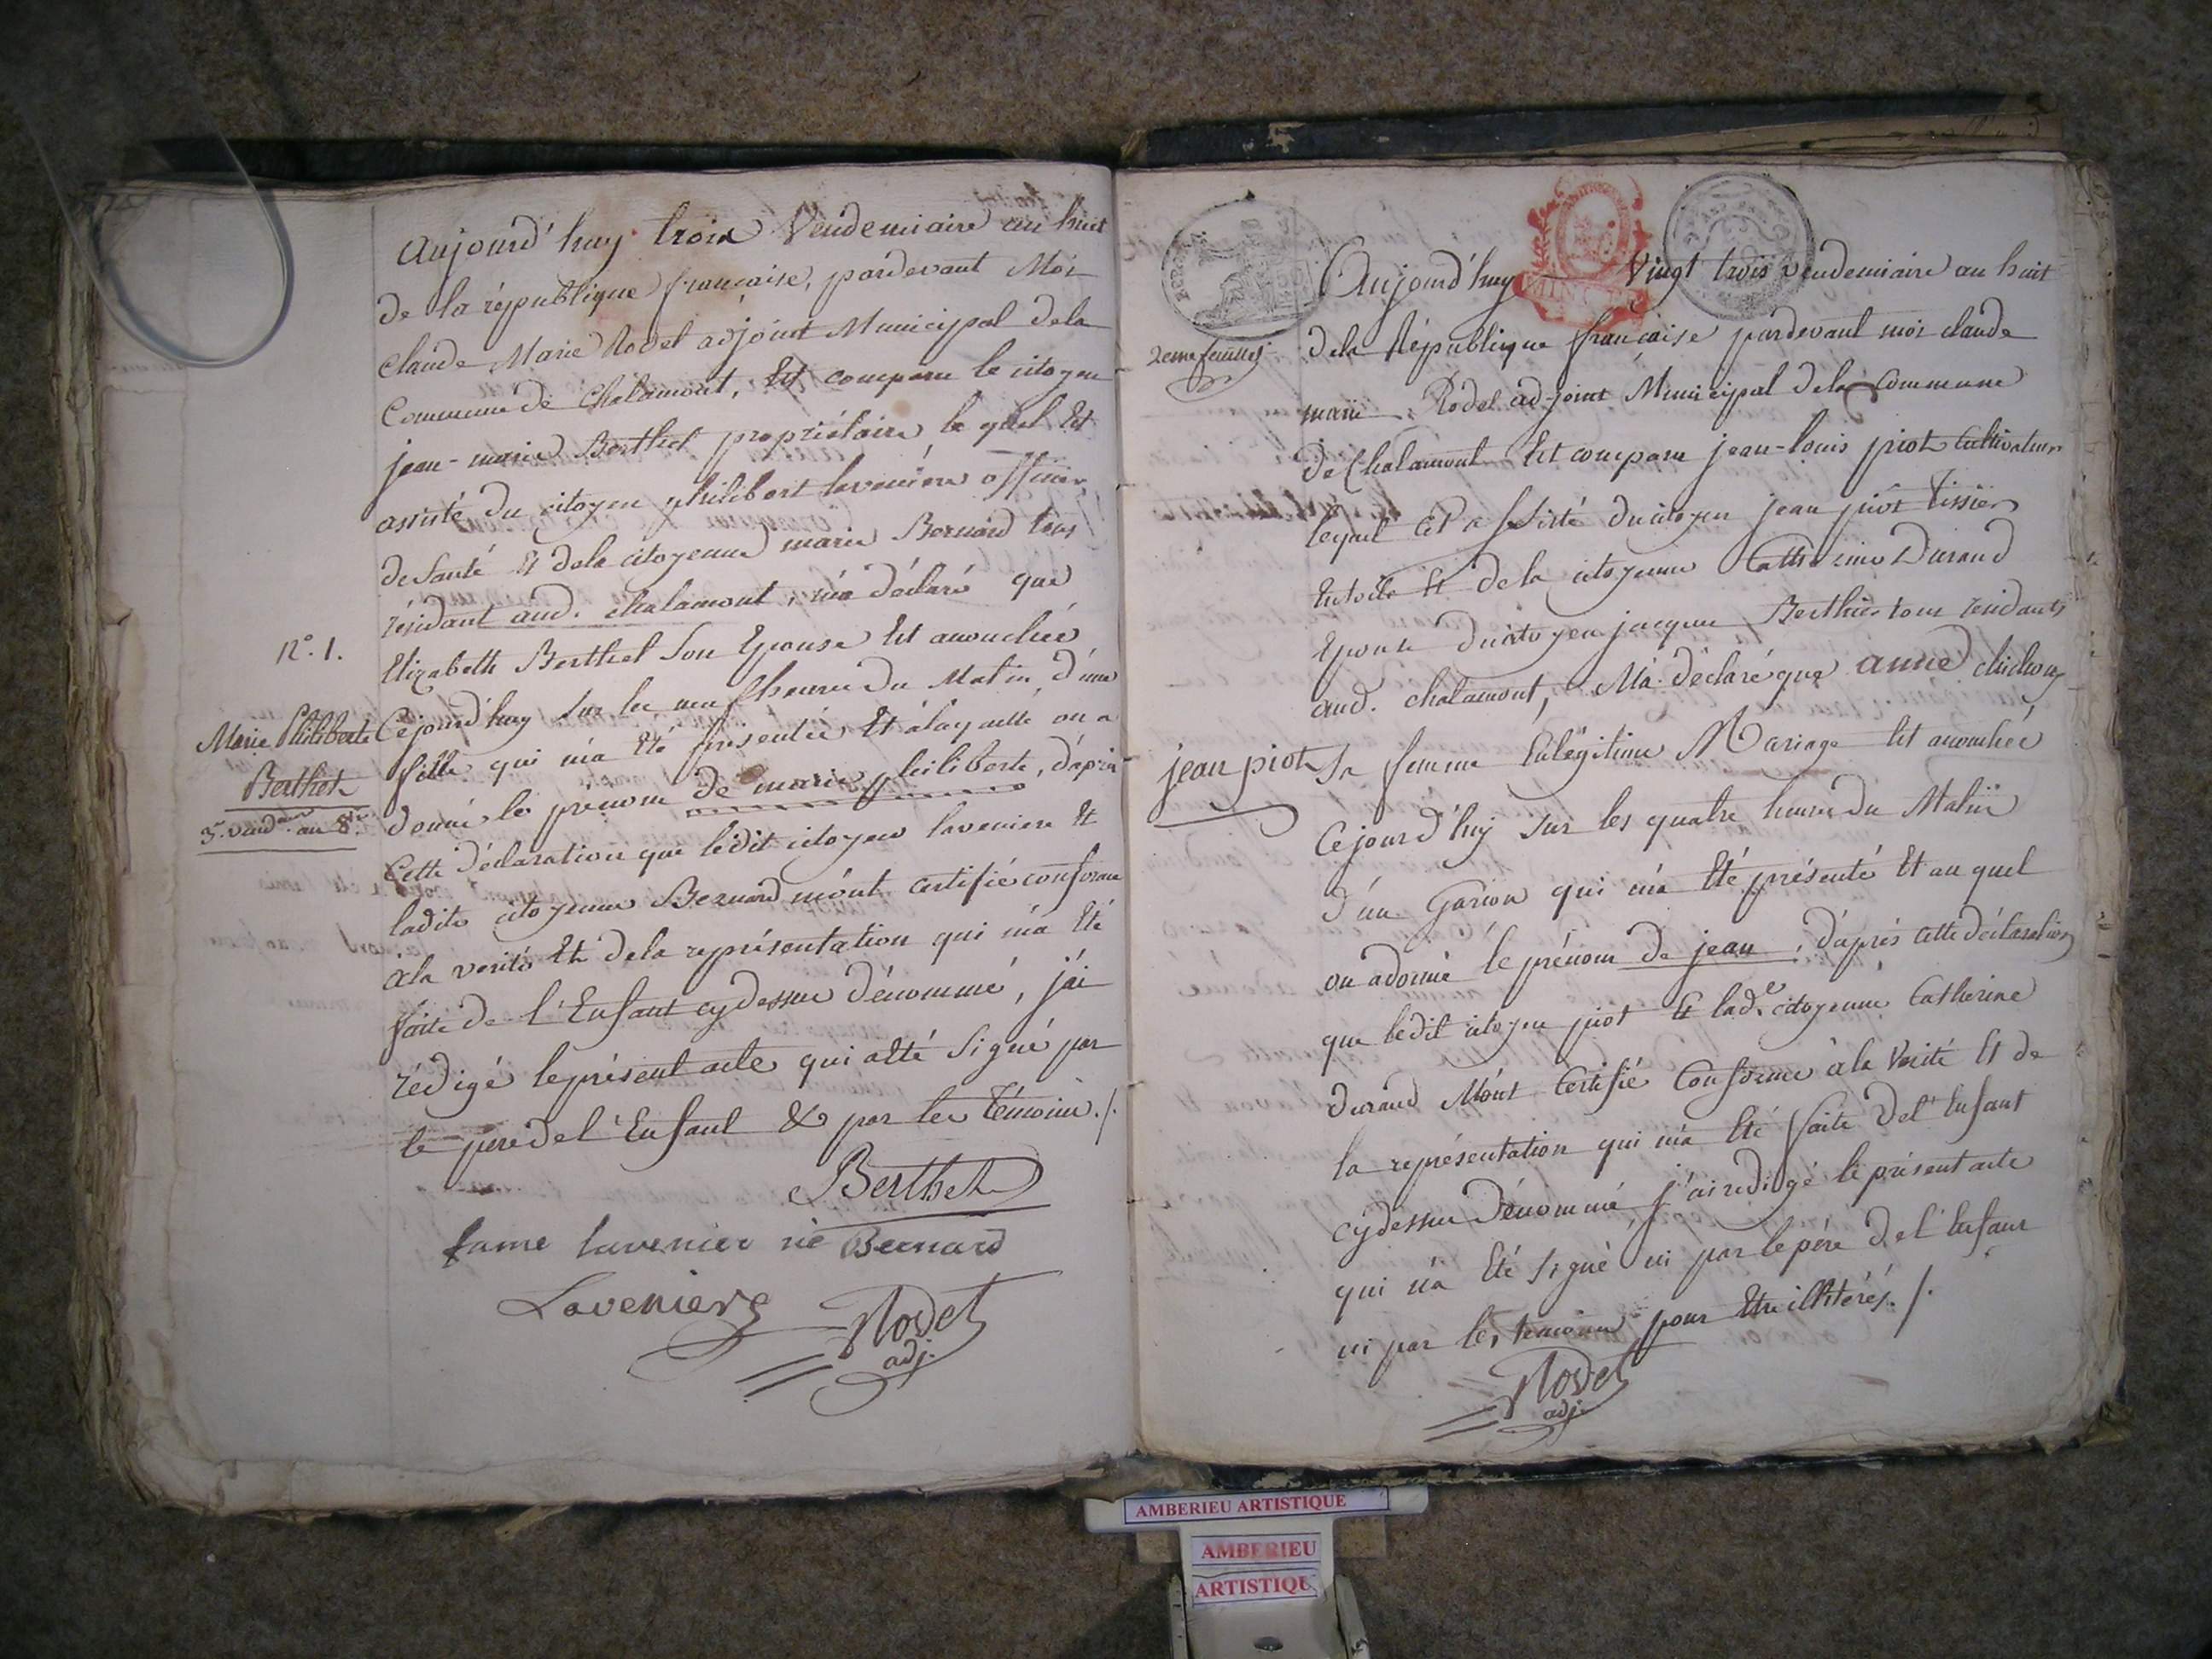 Aujourd'huy trois Vendemiaire an huit
de la république française, pardevant Moi
Claude Marie Rodet adjoint Municipal dela
Commune de Chalamont, Est comparu le citoyen
jean-marie Berthet propriétaire le quel Est
assisté du citoyen philibert laveniere officier
de Santé Et dela citoyenne marie Bernard tous
résidant aud. chalamont, m'a déclaré que
N°. 1.
Elizabeth Berthet Son Epouse Est accouchée
Cejourd'huy sur les neuf heures du Matin, d'une
Marie Philiberte
fille qui m'a Eté présentée Et àlaquelle on a
Berthet
donné le prénom de marie philiberte, d'après
3. vend.re an 8.
Cette déclaration que ledit citoyen laveniere Et
ladite citoyenne Bernard m'ont certifié conforme
àla verité Et dela représentation qui m'a Eté
faite de l'Enfant cydessus dénommé, j'ai
rédigé leprésent acte qui aété signé par
le pere del'Enfant & par les Témoins ./.
Berthet
fame lavenier né Bernard
Laveniere
Rodet
adj.
Aujourd'huy Vingt trois vendemiaire an huit
2eme feuillet
dela République française pardevant moi claude
marie Rodet ad-joint Municipal dela Commune
de Chalamont Est comparu jean-louis piot Cultivateur
lequel Est assisté ducitoyen jean piot Tissier
Entoile Et dela citoyenne Catherine Durand
Epouse ducitoyen jacques Berthier tous residants
aud. chalamont, M'a déclaré que anne chichoux
jean piot
Sa femme Enlégitime Mariage Est accouchée
Cejourd'huy sur les quatre heures du Matin
d'un Garçon qui m'a Eté présenté Et au quel
on adonné le prénom de jean, d'après cette déclaration
que ledit citoyen piot Et lad.e citoyenne Catherine
durand M'ont Certifié Conforme àla Verité Et de
la représentation qui m'a Eté faite del'Enfant
cydessus Dénommé j'airedigé le présent acte
qui n'a Eté signé ni par lepére del'Enfant
ni par les temoins pour Etre illitérés ./.
Rodet
adj.
AMBERIEU ARTISTIQUE
AMBERIEU
ARTISTIQU